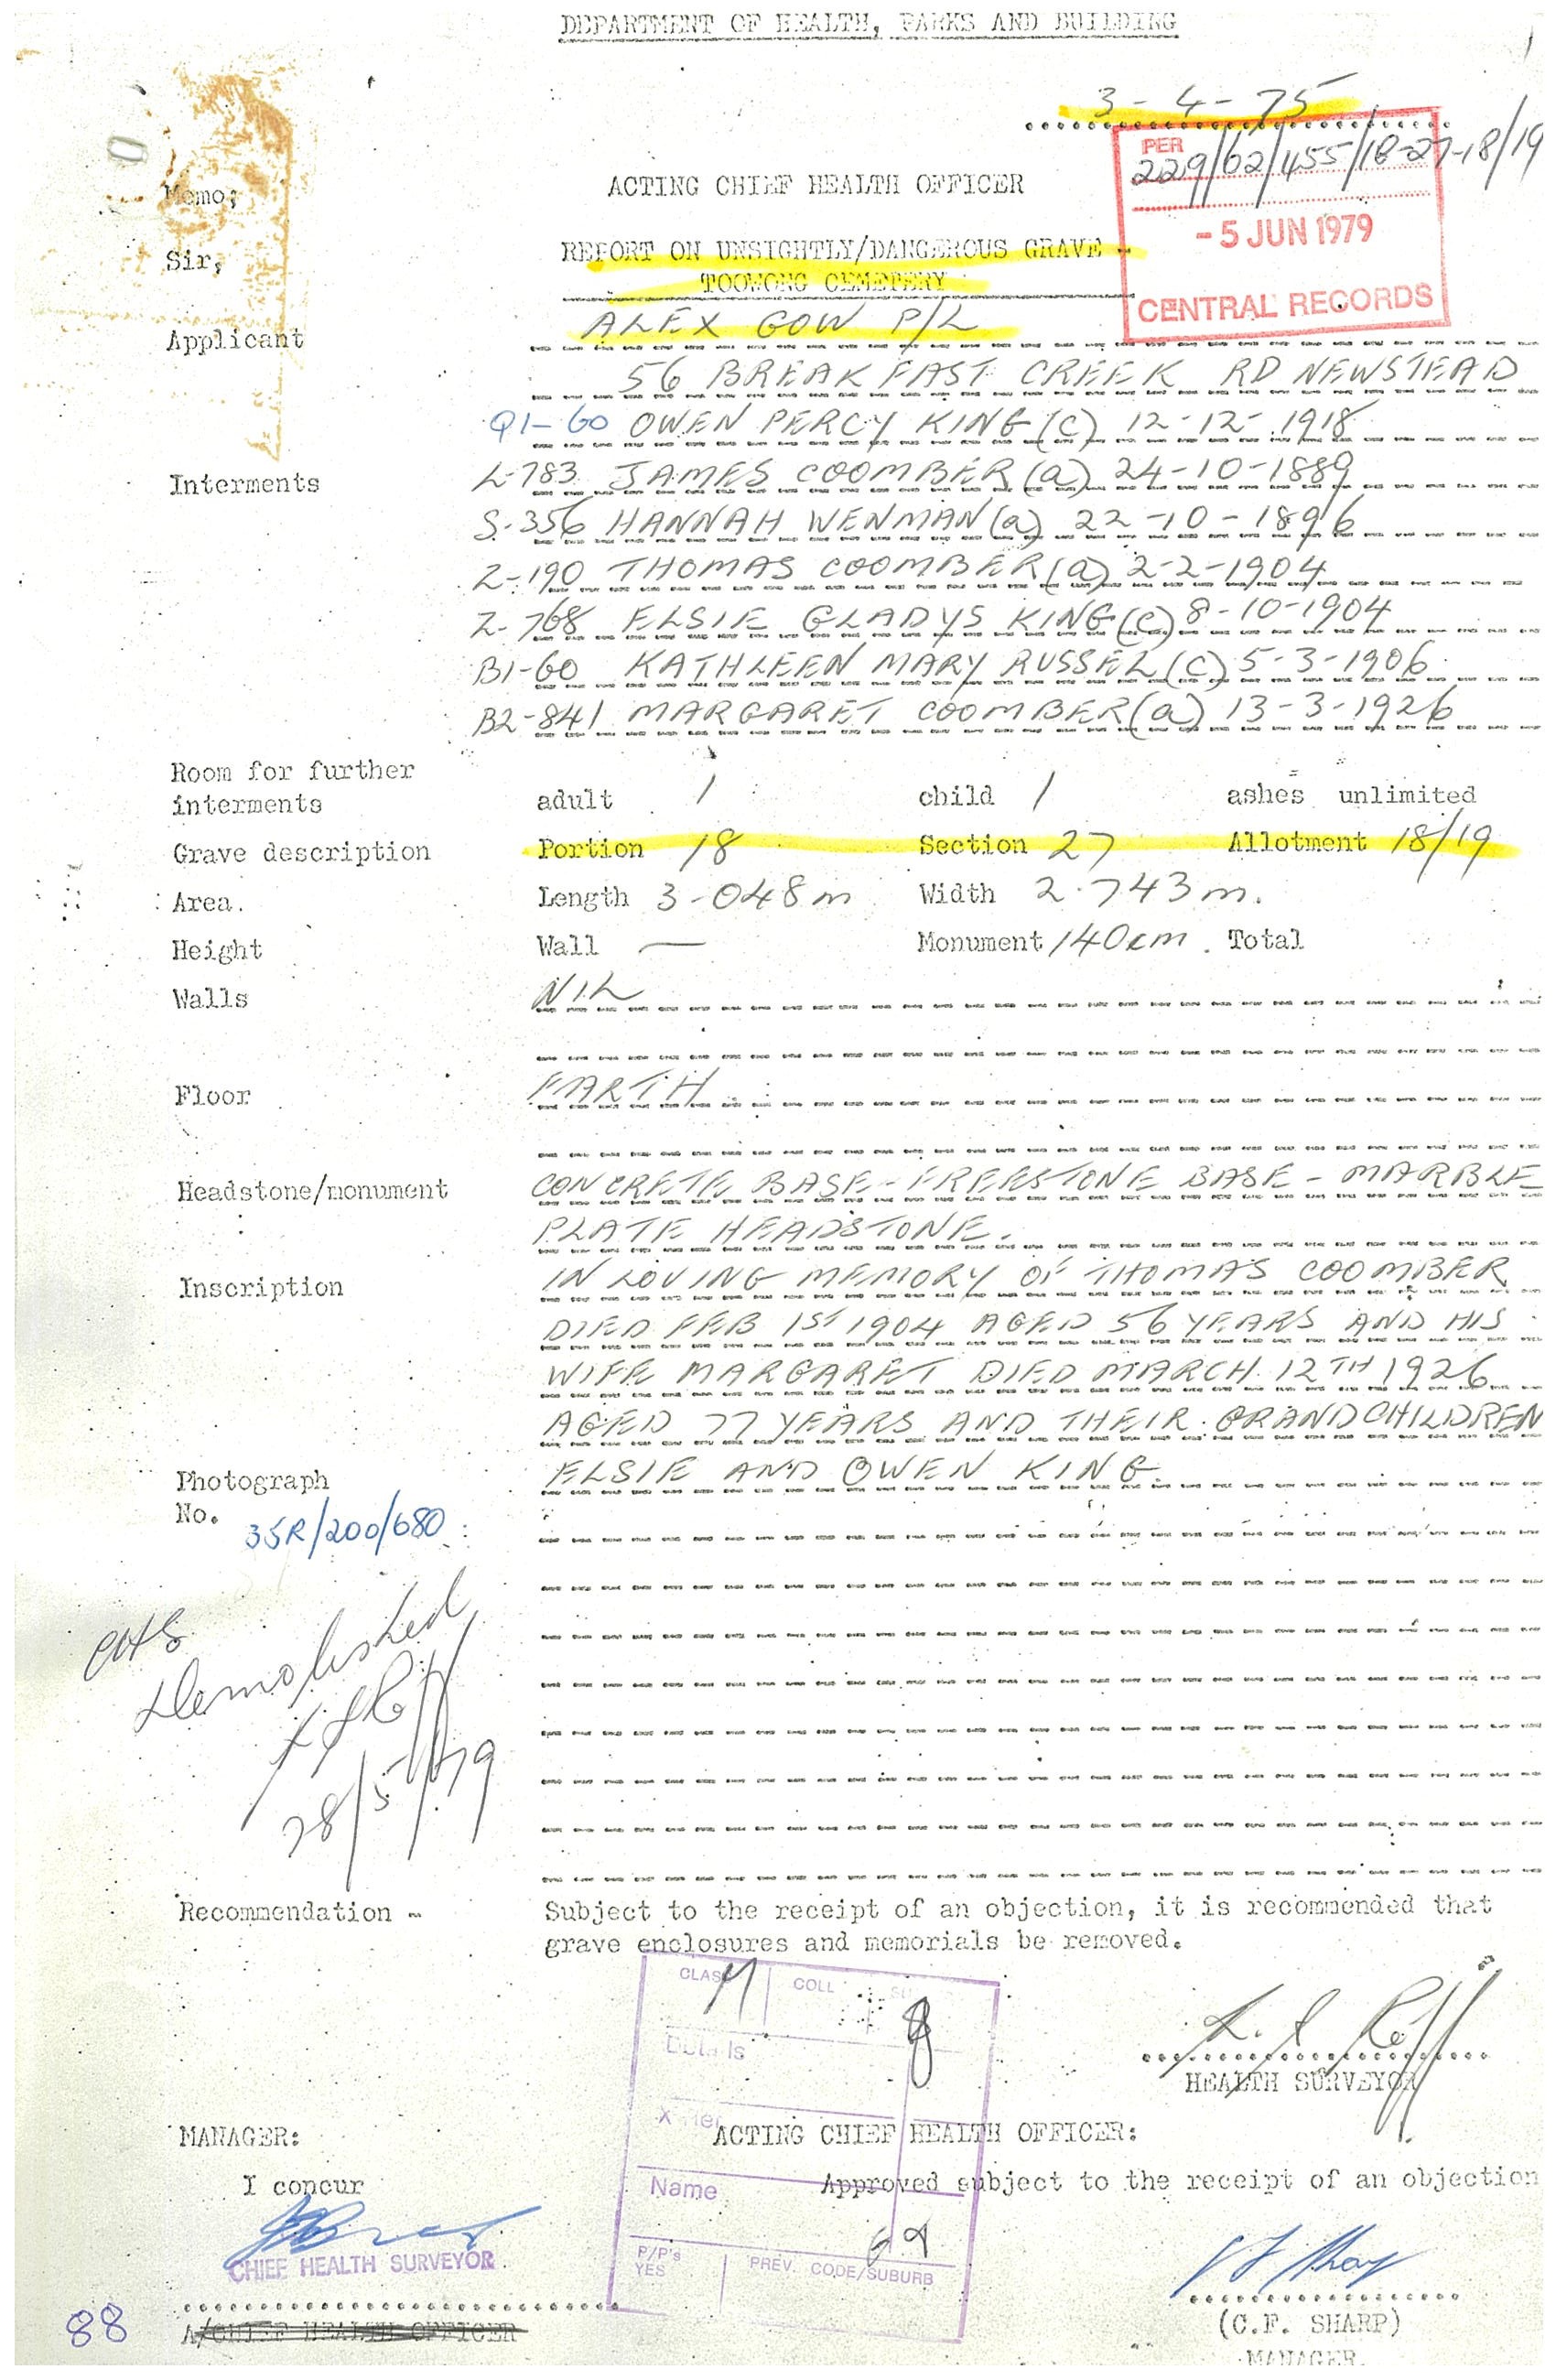 DEPARTMENT OF HEALTH, PARKS AND BUILDING
3 - 4 - 75
PER
229/62/455/18-27-18/19
- 5 JUN 1979
CENTRAL RECORDS
ACTING CHIEF HEALTH OFFICER
Memo;
Sir,
REPORT ON UNSIGHTLY/DANGEROUS GRAVE -
TOOWONG CEMETERY
Applicant ALEX GOW P/L
56 BREAKFAST CREEK RD NEWSTEAD
Q1-60 OWEN PERCY KING (c) 12-12-1918
Interments L-783 JAMES COOMBER (a) 24-10-1889
S-356 HANNAH WENMAN (a) 22-10-1896
Z-190 THOMAS COOMBER (a) 2-2-1904
Z-768 ELSIE GLADYS KING (c) 8-10-1904
B1-60 KATHLEEN MARY RUSSEL (c) 5-3-1906
B2-841 MARGARET COOMBER (a) 13-3-1926
Room for further
interments adult 1 child 1 ashes unlimited
Grave description Portion 18 Section 27 Allotment 18/19
Area. Length 3-048m Width 2.743m.
Height Wall — Monument 140cm. Total
Walls NIL
Floor EARTH
Headstone/monument CONCRETE BASE - FREESTONE BASE - MARBLE
PLATE HEADSTONE.
Inscription IN LOVING MEMORY OF THOMAS COOMBER
DIED FEB 1ST 1904 AGED 56 YEARS AND HIS
WIFE MARGARET DIED MARCH 12TH 1926
AGED 77 YEARS AND THEIR GRANDCHILDREN
ELSIE AND OWEN KING.
Photograph
No. 35R/200/680
Demolished
28/5/79
Recommendation - Subject to the receipt of an objection, it is recommended that
grave enclosures and memorials be removed.
CLASS COLL
Details
Name
69
P/P's
YES
PREV. CODE/SUBURB
HEALTH SURVEYOR
MANAGER: ACTING CHIEF HEALTH OFFICER:
I concur Approved subject to the receipt of an objection
CHIEF HEALTH SURVEYOR
A/CHIEF HEALTH OFFICER
(C.F. SHARP)
MANAGER.
88